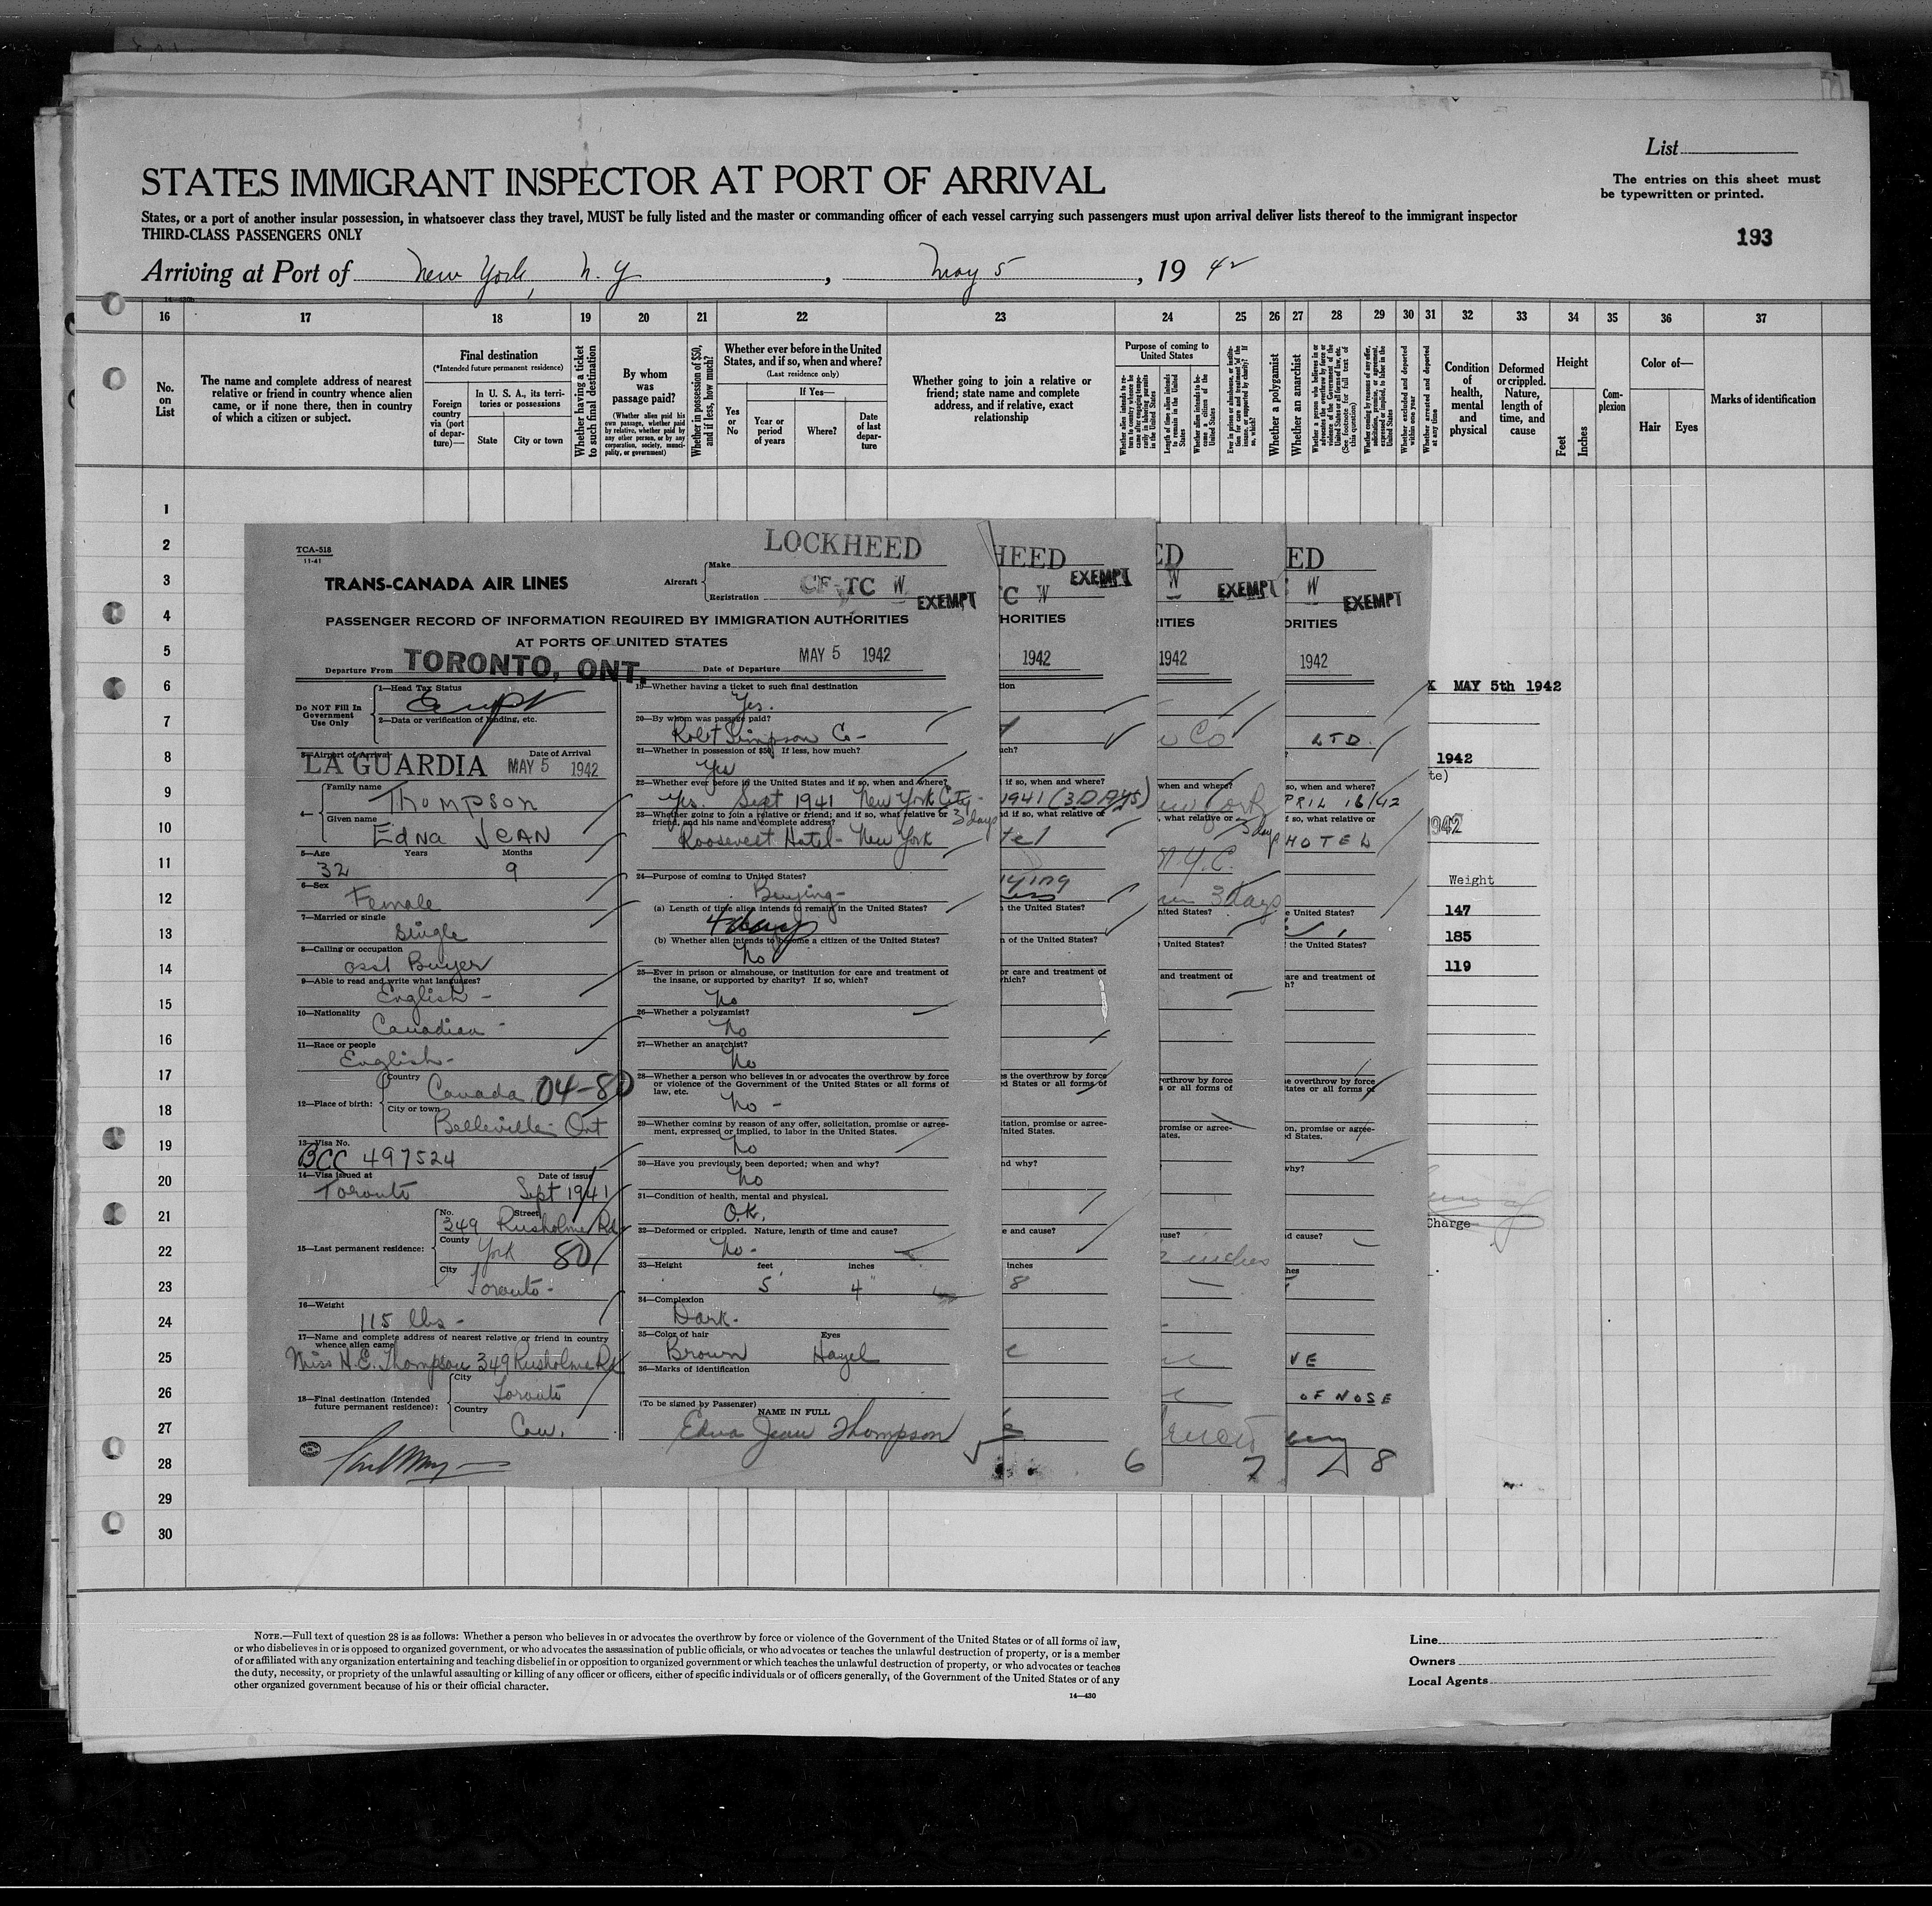 List
STATES IMMIGRANT INSPECTOR AT PORT OF ARRIVAL
The entries on this sheet must
be typewritten or printed.
States, or a port of another insular possession, in whatsoever class they travel, MUST be fully listed and the master or commanding officer of each vessel carrying such passengers must upon arrival deliver lists thereof to the immigrant inspector
THIRD-CLASS PASSENGERS ONLY
193
Arriving at Port of New York, N.Y , May 5 , 19 42
16 17 18 19 20 21 22 23 24 25 26 27 28 29 30 31 32 33 34 35 36 37
No.
on
List
The name and complete address of nearest
relative or friend in country whence alien
came, or if none there, then in country
of which a citizen or subject.
Final destination
(*Intended future permanent residence)
Foreign
country
via (port
of depar-
ture)—
In U. S. A., its terri-
tories or possessions
State City or town
Whether having a ticket
to such final destination
By whom
was
passage paid?
(Whether alien paid his
own passage, whether paid
by relative, whether paid by
any other person, or by any
corporation, society, munici-
pality, or government)
Whether in possession of $50,
and if less, how much?
Whether ever before in the United
States, and if so, when and where?
(Last residence only)
Yes
or
No
If Yes—
Year or
period
of years
Where?
Date
of last
depar-
ture
Whether going to join a relative or
friend; state name and complete
address, and if relative, exact
relationship
Purpose of coming to
United States
Length of time alien intends
to remain in the United
States
Whether alien intends to be-
come a citizen of the
United States
Whether a polygamist
Whether an anarchist
Whether excluded and deported
within one year
Whether arrested and deported
at any time
Condition
of
health,
mental
and
physical
Deformed
or crippled.
Nature,
length of
time, and
cause
Height
Feet
Inches
Com-
plexion
Color of—
Hair Eyes
Marks of identification
1
2
3
4
5
6
7
8
9
10
11
12
13
14
15
16
17
18
19
20
21
22
23
24
25
26
27
28
29
30
TCA-518
11-41
TRANS-CANADA AIR LINES
Aircraft
Make LOCKHEED
Registration CF-TC W
EXEMPT
PASSENGER RECORD OF INFORMATION REQUIRED BY IMMIGRATION AUTHORITIES
AT PORTS OF UNITED STATES
Departure From TORONTO, ONT. Date of Departure MAY 5 1942
Do NOT Fill In
Government
Use Only
1—Head Tax Status
2—Data or verification of landing, etc.
3—Airport of Arrival Date of Arrival
LA GUARDIA MAY 5 1942
4—
Family name
Thompson
Given name
Edna Jean
5—Age Years Months
32 9
6—Sex
Female
7—Married or single
Single
8—Calling or occupation
asst Buyer
9—Able to read and write what languages?
English -
10—Nationality
Canadian -
11—Race or people
English -
12—Place of birth:
Country
Canada 04-80
City or town
Belleville - Ont
13—Visa No.
BCC 497524
14—Visa issued at Date of issue
Toronto Sept 1941
15—Last permanent residence:
No. Street
349 Rusholme Rd
County
York 80
City
Toronto -
16—Weight
115 lbs -
17—Name and complete address of nearest relative or friend in country
whence alien came
Miss H. E. Thompson 349 Rusholme Rd
18—Final destination (Intended
future permanent residence):
City
Toronto
Country
Can.
19—Whether having a ticket to such final destination
Yes.
20—By whom was passage paid?
Robt Simpson Co -
21—Whether in possession of $50, If less, how much?
Yes
22—Whether ever before in the United States and if so, when and where?
Yes. Sept 1941 New York City -
3 days
23—Whether going to join a relative or friend; and if so, what relative or
friend, and his name and complete address?
Roosevelt Hotel - New York
24—Purpose of coming to United States?
Buying -
(a) Length of time alien intends to remain in the United States?
4 days
(b) Whether alien intends to become a citizen of the United States?
No
25—Ever in prison or almshouse, or institution for care and treatment of
the insane, or supported by charity? If so, which?
No
26—Whether a polygamist?
No
27—Whether an anarchist?
No
28—Whether a person who believes in or advocates the overthrow by force
or violence of the Government of the United States or all forms of
law, etc.
No -
29—Whether coming by reason of any offer, solicitation, promise or agree-
ment, expressed or implied, to labor in the United States.
No
30—Have you previously been deported; when and why?
No
31—Condition of health, mental and physical.
O.K.
32—Deformed or crippled. Nature, length of time and cause?
No -
33—Height feet inches
5' 4"
34—Complexion
Dark -
35—Color of hair Eyes
Brown Hazel
36—Marks of identification
(To be signed by Passenger)
NAME IN FULL
Edna Jean Thompson
HEED
C W
EXEMPT
HORITIES
1942
1941 (3 DAYS)
8
6
ED
W
EXEMPT
RITIES
1942
Co
New York
3 days
N.Y.C.
3 days
2 inches
7
ED
W
EXEMPT
ORITIES
1942
LTD.
PRIL 16/42
HOTEL
VE
OF NOSE
8
MAY 5th 1942
1942
te)
1942
Weight
147
185
119
Charge
NOTE.—Full text of question 28 is as follows: Whether a person who believes in or advocates the overthrow by force or violence of the Government of the United States or of all forms of law,
or who disbelieves in or is opposed to organized government, or who advocates the assassination of public officials, or who advocates or teaches the unlawful destruction of property, or is a member
of or affiliated with any organization entertaining and teaching disbelief in or opposition to organized government or which teaches the unlawful destruction of property, or who advocates or teaches
the duty, necessity, or propriety of the unlawful assaulting or killing of any officer or officers, either of specific individuals or of officers generally, of the Government of the United States or of any
other organized government because of his or their official character.
14—430
Line
Owners
Local Agents